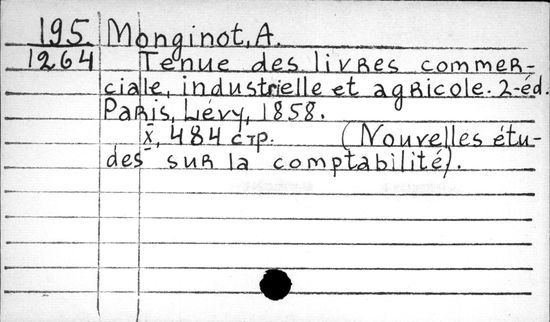 195. Monginot, A.
1264 Tenue des livres commer-
ciale, industrielle et agricole. 2-éd.
Paris, Lévy, 1858.
X, 484 стр. (Nouvelles étu-
des sur la comptabilité).